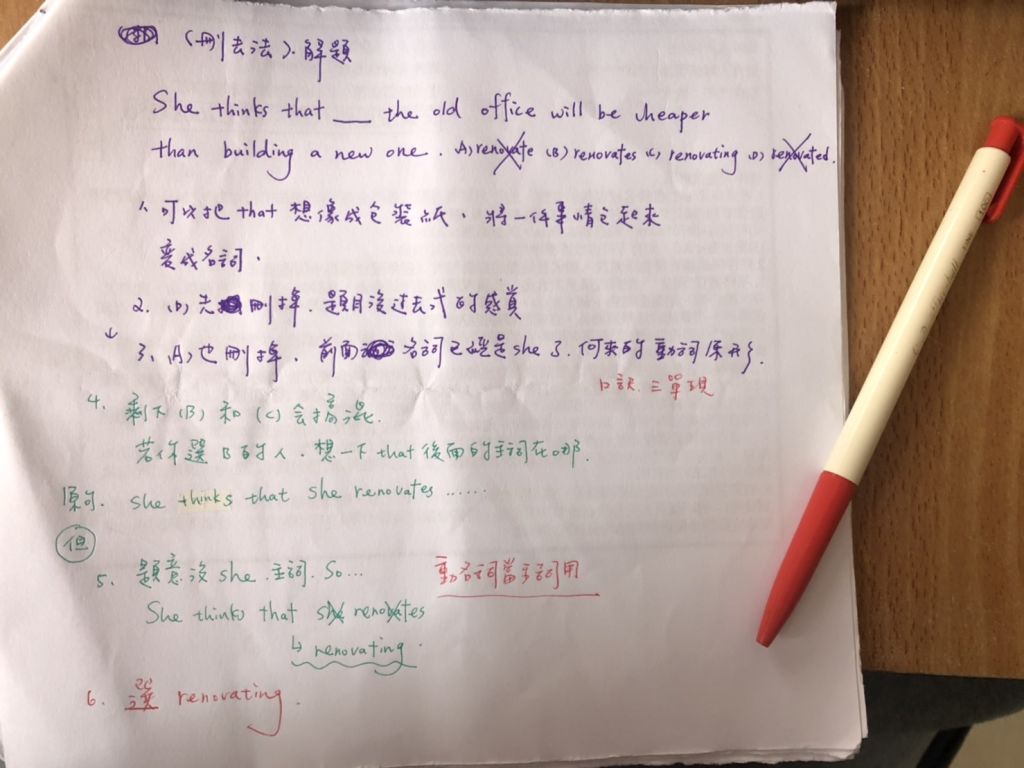 (刪去法). 解題
She thinks that ___ the old office will be cheaper
than building a new one. A) renovate (B) renovates (C) renovating (D) renovated.
1、可以把 that 想像成包裝紙, 將一件事情包起來
變成名詞.
2. (D) 先刪掉. 題目沒過去式的感覺
3、(A) 也刪掉. 前面名詞已經是 she 了. 何來的動詞原形.
口訣. 三單現
4. 剩下 (B) 和 (C) 会搞混.
若你選 B 的人. 想一下 that 後面的主詞在哪.
原句. she thinks that she renovates ......
但
5. 題意沒 she 主詞. So... 動名詞當主詞用
She thinks that she renovates
↳ renovating.
6. 選 renovating.